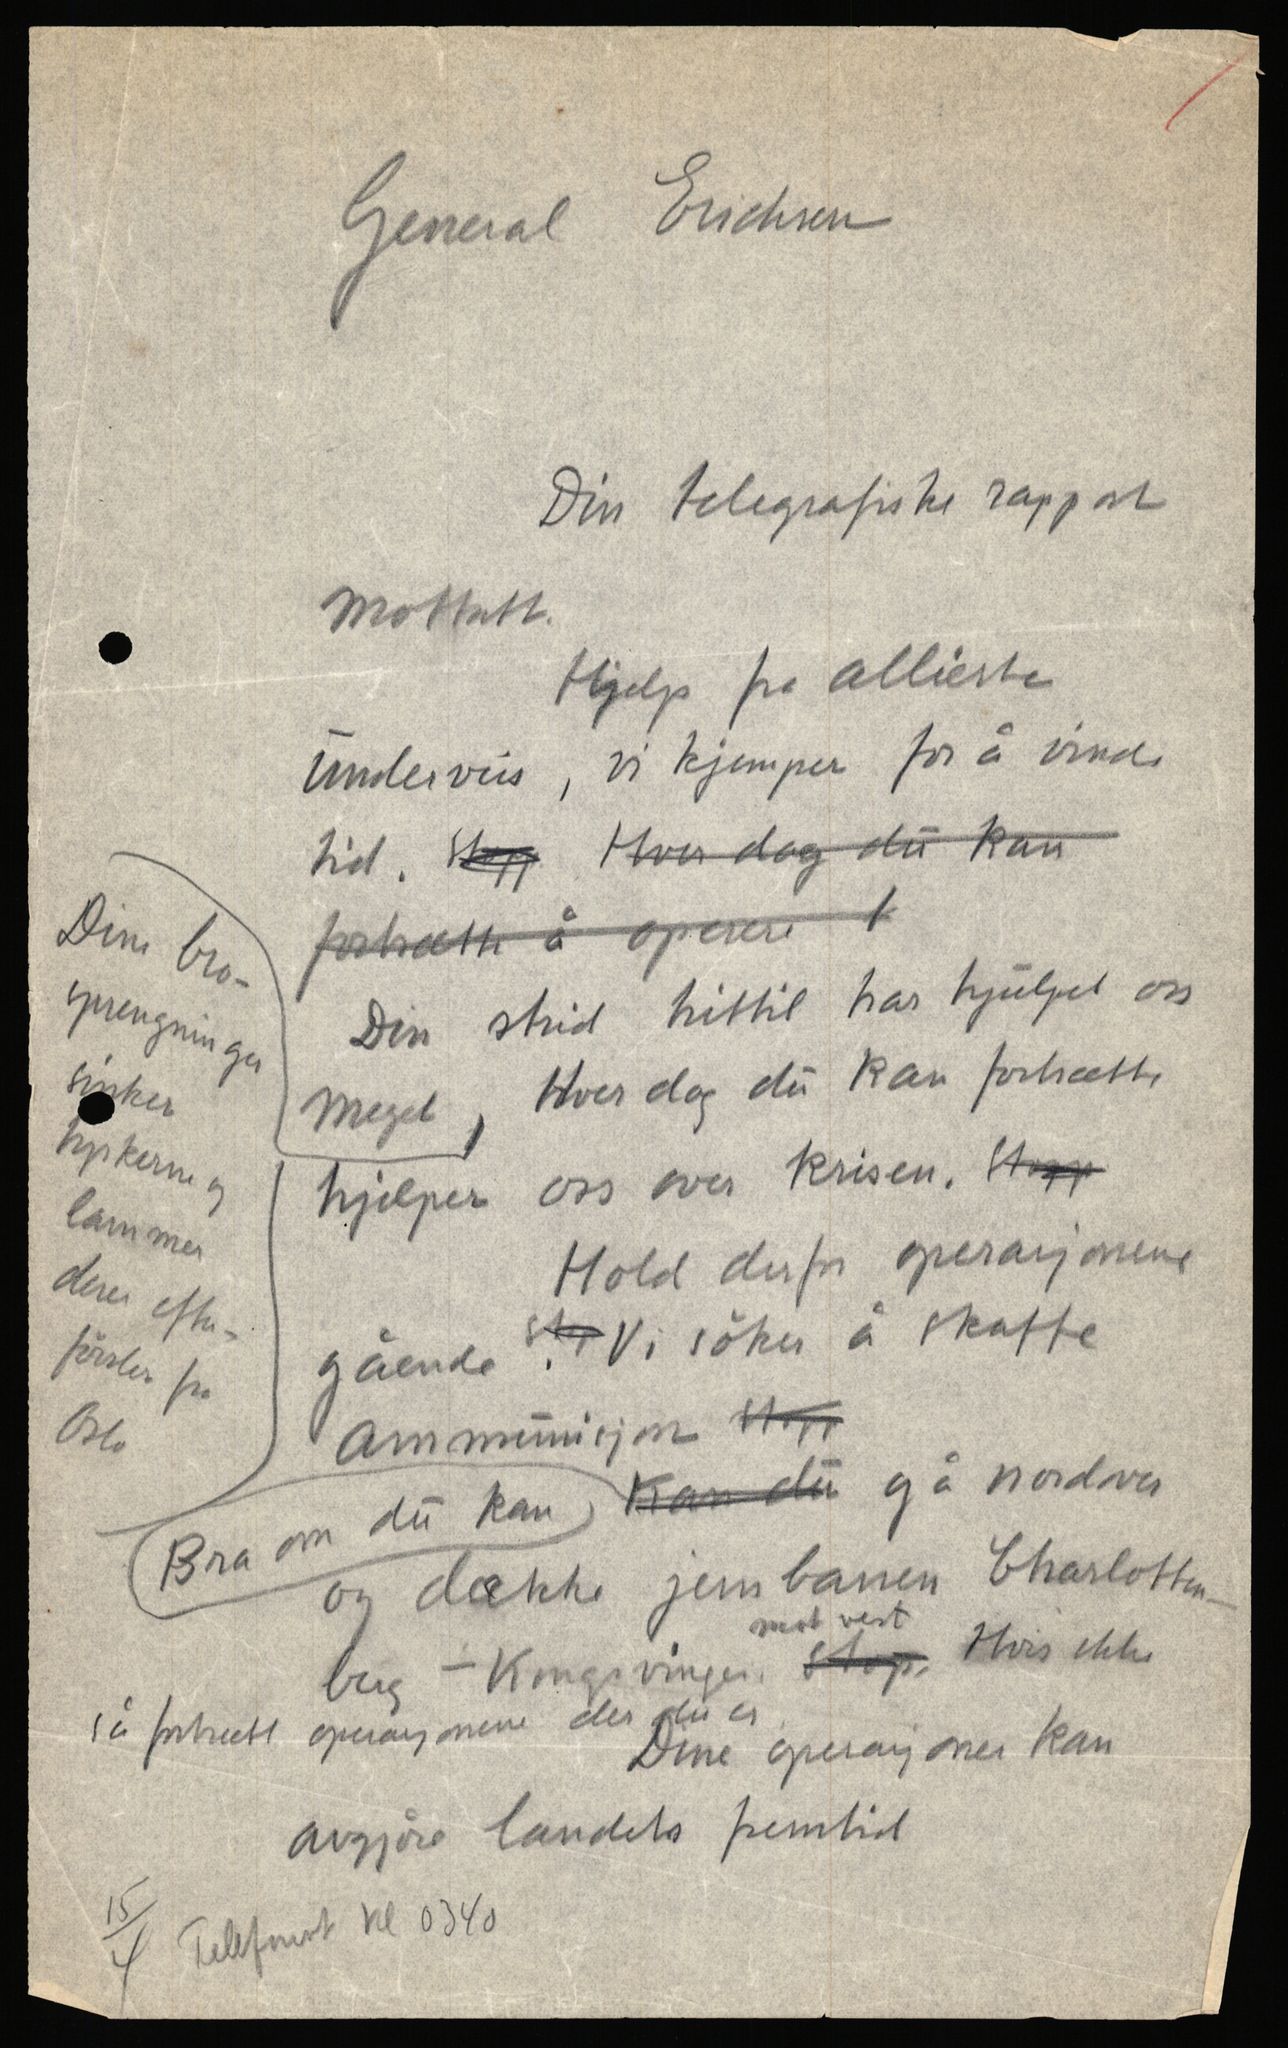 General Erichsen
Din telegrafiske rapport
mottatt.
Hjelp fra allierte
underveis, vi kjemper for å vinde
tid. Stopp Hver dag du kan
fortsætte å operere
Din strid hittil har hjulpet oss
meget, Hver dag du kan fortsætte
hjelper oss over krisen. Stopp
Hold derfor operasjonene
gående. Stop Vi søker å skaffe
ammunisjon Stopp
Bra om du kan Kan du gå nordover
og dække jernbanen Charlotten-
berg - Kongsvinger. mot vest Stopp. Hvis ikke
så fortsett operasjonene der du er
Dine operasjoner kan
avgjøre landets fremtid
Dine bro-
sprengninger
sinker
tyskerne og
lammer
deres efter-
førsler fra
Oslo
15/4 Telefonert kl 0340